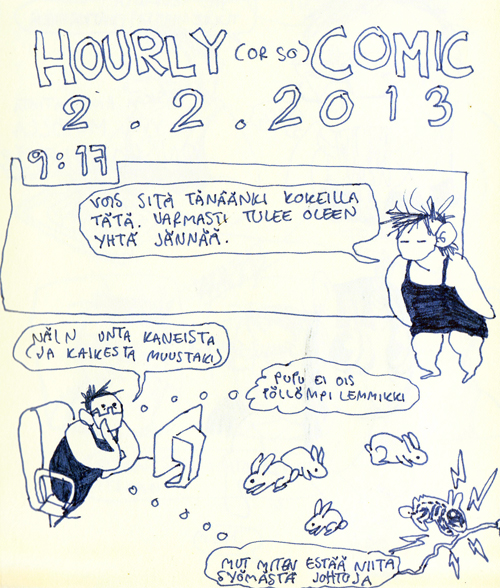 HOURLY (OR SO) COMIC
2.2.2013
9:17
VOIS SITÄ TÄNÄÄNKI KOKEILLA
TÄTÄ. VARMASTI TULEE OLEEN
YHTÄ JÄNNÄÄ.
NÄIN UNTA KANEISTA
(JA KAIKESTA MUUSTAKI)
PUPU EI OIS
PÖLLÖMPI LEMMIKKI
MUT MITEN ESTÄÄ NIITÄ
SYÖMÄSTÄ JOHTOJA